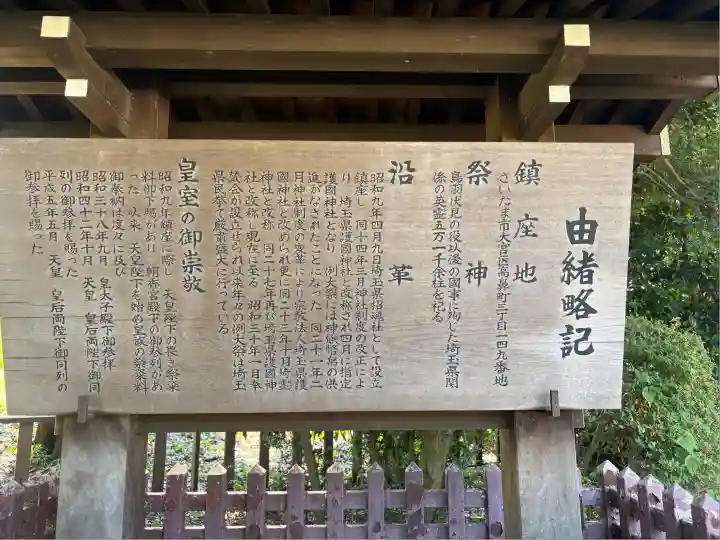 由緒略記
鎮座地
さいたま市大宮区高鼻町三丁目一四九番地
祭神
鳥羽伏見の役以後の國事に殉じた埼玉県関
係の英霊五万一千余柱を祀る
沿革
昭和九年四月九日埼玉県招魂社として設立
鎮座し 同十四年三月神社制度の改正によ
り、埼玉県護國神社と改称され四月に指定
護國神社となり 例大祭には神饌幣帛の供
進がなされたことになった 同二十一年二
月神社制度の変革により宗教法人埼玉県護
國神社と改められ更に同二十三年十月埼霊
神社と改称 同二十七年再び埼玉県護國神
社と改称し現在に至る 昭和三十年一月奉
賛会が設立せられ以来年々の例大祭は埼玉
県民挙て厳粛盛大に行っている
皇室の御崇敬
昭和九年鎮座に際し 天皇陛下の畏き祭粢
料御下賜があり朝香宮殿下の御参列があ
った 以来 天皇陛下を始め皇族の祭粢料
御奉納は度々に及び
昭和三十八年九月 皇太子殿下御参拝
昭和四十二年十月 天皇 皇后両陛下御同
列の御参拝を賜った
平成五年五月 天皇 皇后両陛下御同列の
御参拝を賜った